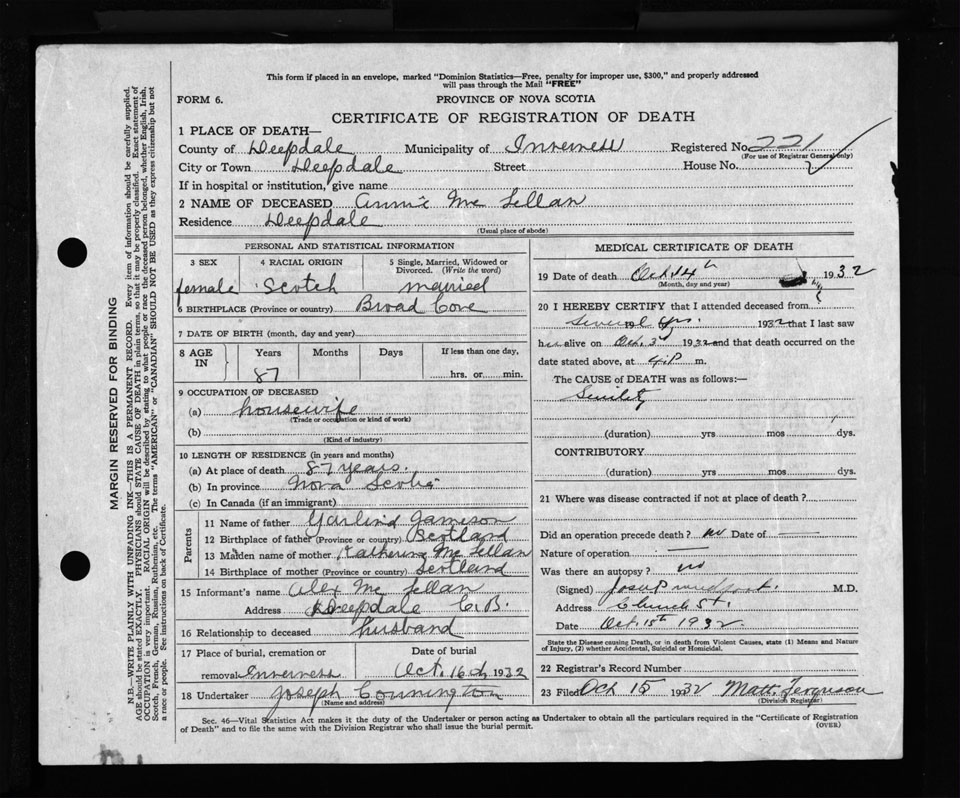 This form if placed in an envelope, marked "Dominion Statistics—Free, penalty for improper use, $300," and properly addressed
will pass through the Mail "FREE"
FORM 6.
PROVINCE OF NOVA SCOTIA
CERTIFICATE OF REGISTRATION OF DEATH
1 PLACE OF DEATH—
County of Deepdale Municipality of Inverness Registered No. 221
(For use of Registrar General only)
City or Town Deepdale Street House No.
If in hospital or institution, give name
2 NAME OF DECEASED Annie Mc Lellan
Residence Deepdale
(Usual place of abode)
PERSONAL AND STATISTICAL INFORMATION
3 SEX 4 RACIAL ORIGIN 5 Single, Married, Widowed or
Divorced. (Write the word)
female Scotch married
6 BIRTHPLACE (Province or country) Broad Cove
7 DATE OF BIRTH (month, day and year)
8 AGE IN Years Months Days If less than one day,
87 hrs. or min.
9 OCCUPATION OF DECEASED
(a) housewife
(Trade or occupation or kind of work)
(b)
(Kind of industry)
10 LENGTH OF RESIDENCE (in years and months)
(a) At place of death 87 years.
(b) In province Nova Scotia
(c) In Canada (if an immigrant)
Parents
11 Name of father Jamison
12 Birthplace of father (Province or country) Scotland
13 Maiden name of mother Katherine Mc Lellan
14 Birthplace of mother (Province or country) Scotland
15 Informant's name Alex Mc Lellan
Address Deepdale C.B.
16 Relationship to deceased husband
17 Place of burial, cremation or Date of burial
removal Inverness Oct. 16th 1932
18 Undertaker Joseph Connington
(Name and address)
MEDICAL CERTIFICATE OF DEATH
19 Date of death Oct. 14th 1932
(Month, day and year)
20 I HEREBY CERTIFY that I attended deceased from
Several yrs. 1932 that I last saw
her alive on Oct. 3rd 1932 and that death occurred on the
date stated above, at 4 P m.
The CAUSE OF DEATH was as follows:—
Senility
(duration) yrs mos dys.
CONTRIBUTORY
(duration) yrs mos dys.
21 Where was disease contracted if not at place of death?
Did an operation precede death? no Date of —
Nature of operation —
Was there an autopsy? no
(Signed) M.D.
Address Church St.
Date Oct. 15th 1932
State the Disease causing Death, or in death from Violent Causes, state (1) Means and Nature
of Injury, (2) whether Accidental, Suicidal or Homicidal.
22 Registrar's Record Number
23 Filed Oct 15 1932 Matt. Ferguson
(Division Registrar)
Sec. 46—Vital Statistics Act makes it the duty of the Undertaker or person acting as Undertaker to obtain all the particulars required in the "Certificate of Registration
of Death" and to file the same with the Division Registrar who shall issue the burial permit. (OVER)
MARGIN RESERVED FOR BINDING
N.B.—WRITE PLAINLY WITH UNFADING INK—THIS IS A PERMANENT RECORD. Every item of information should be carefully supplied.
AGE should be stated EXACTLY. PHYSICIANS should STATE CAUSE OF DEATH in plain terms, so that it may be properly classified. Exact statement of
OCCUPATION is very important. RACIAL ORIGIN will be described by stating to what people or race the deceased person belonged, whether English, Irish,
Scotch, French, German, Russian, Ruthenian, etc. The terms "AMERICAN" or "CANADIAN" SHOULD NOT BE USED as they express citizenship but not
a race or people. See instructions on back of Certificate.